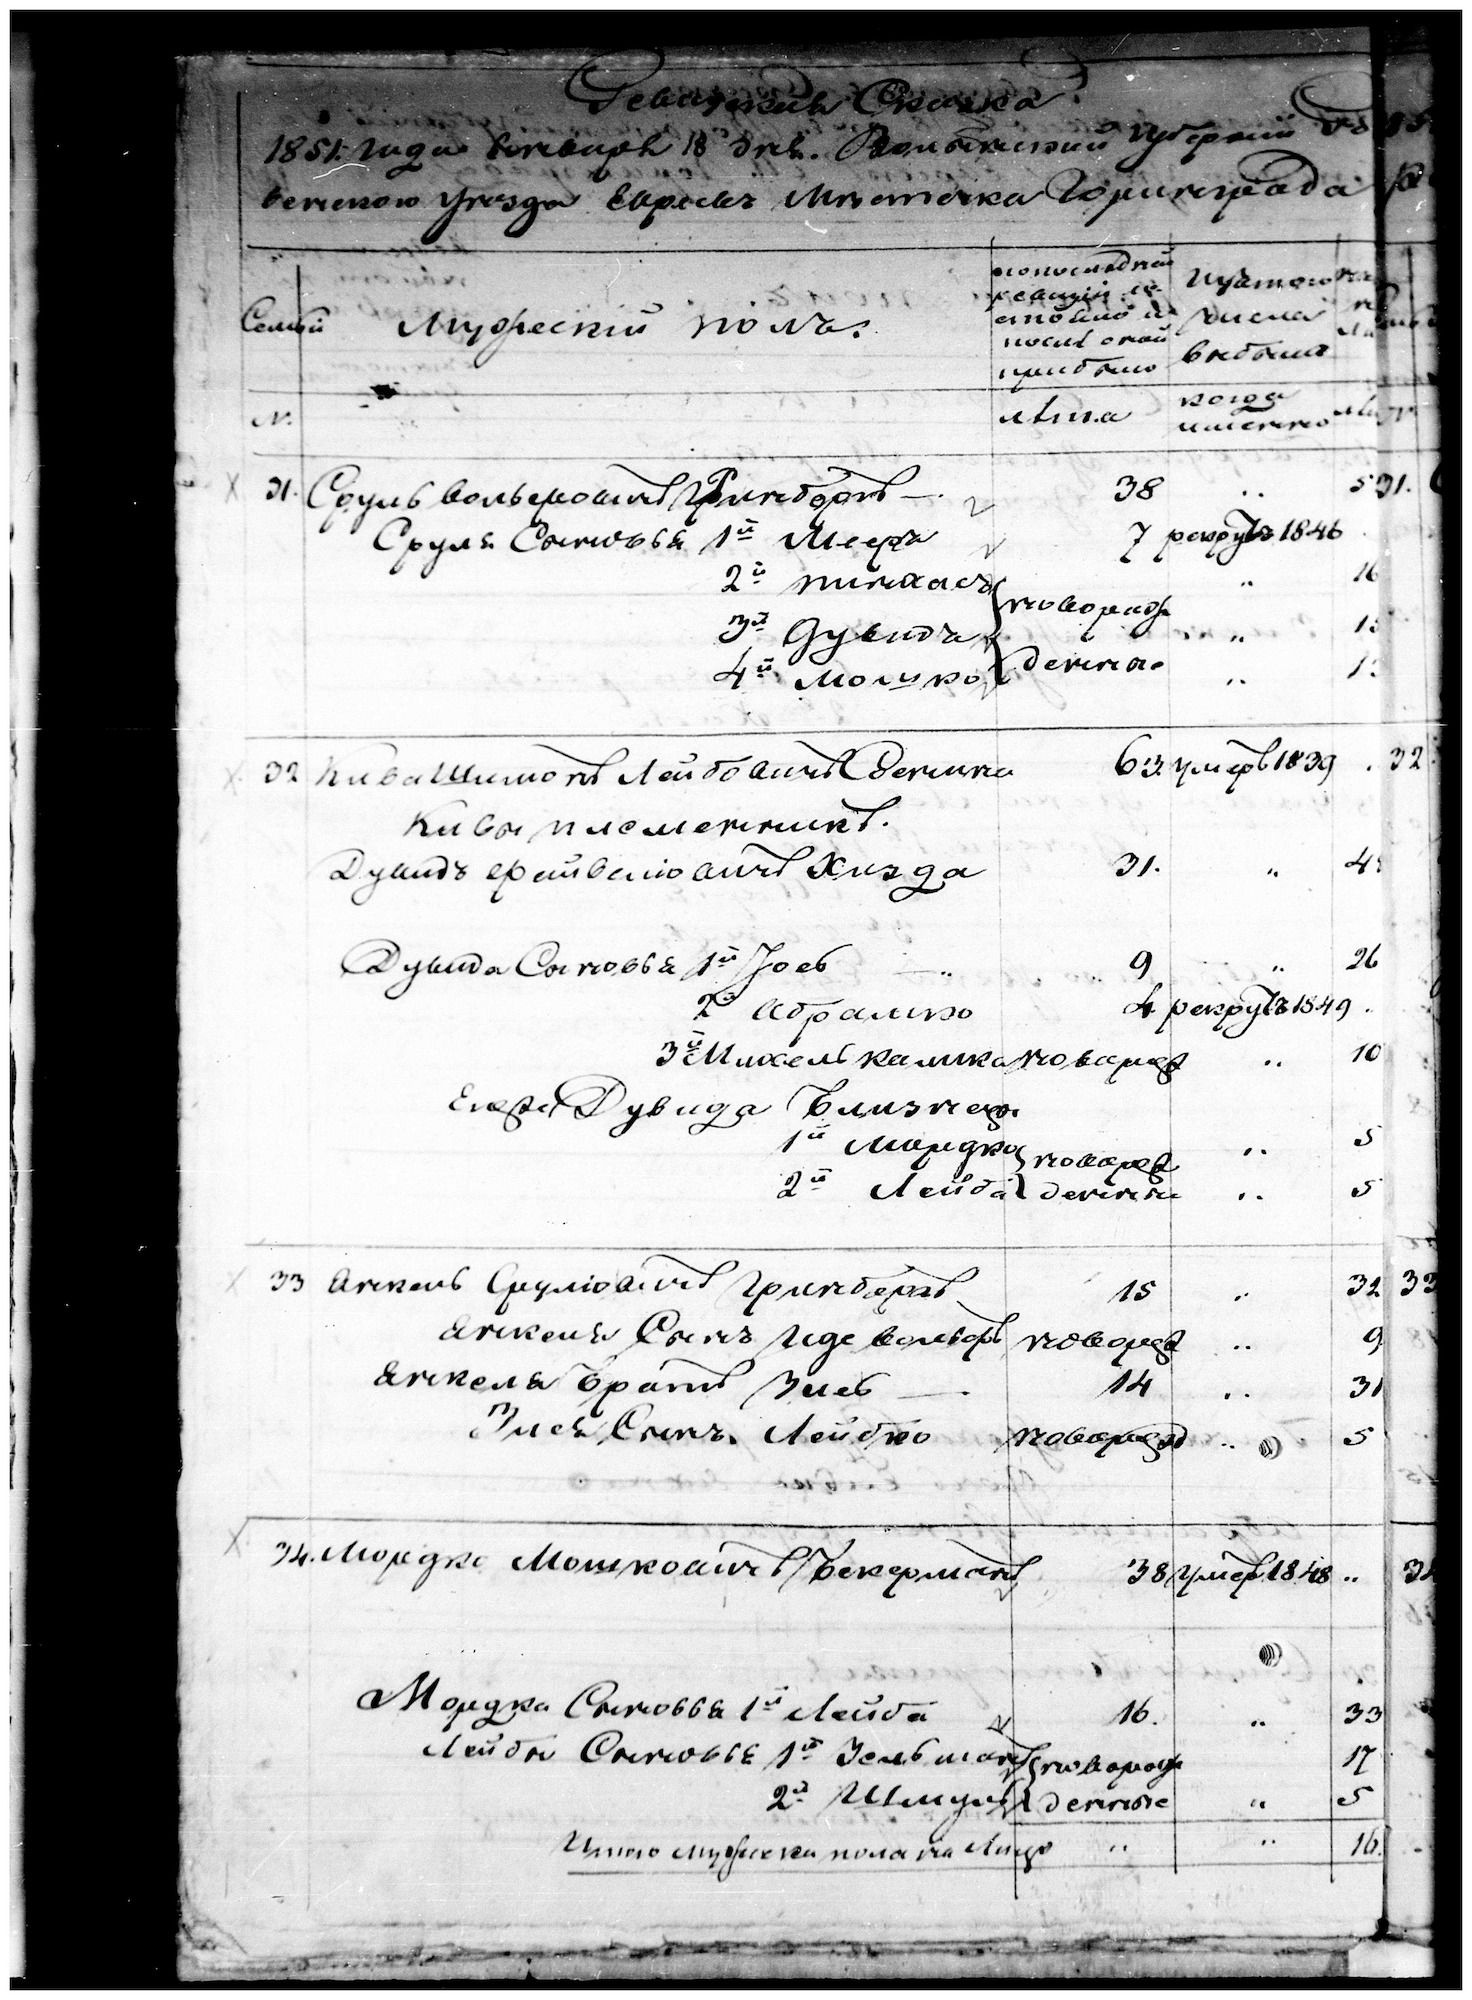 Ревизская Сказка
1851. Года Генваря 18 дня. Волынской Губернии
венского уезда Евреевъ Местечка Горинграда
Семьи Мужескій полъ.
по последней ревизіи состояло и после оной прибыло
Изъ того числа выбыло
№.
лета
когда именно
31. Сруль Вольфовичъ Гринбергъ — 38 ..
31.
Сруля Сыновья 1й Мееръ 7 рекрутъ 1846
2й Пинхасъ новорож „ 16
3й Дувидъ „
4й Мошко денные „
32 Кива Шимонъ Лейбовичъ 63 умеръ 1839 . 32
Кивы племенникъ.
Дувидъ Файвелювичъ Хизда 31. „
Дувида Сыновья 1й Іось 9 „ 26
2й Абрамко 4 рекрутъ 1849 .
3й Михель калика новорож „ 10
Его же Дувида близнецы
1й Мордко новорож „ 5
2й Лейба денные „ 5
33 Янкель Срулювичъ Гринбергъ 15 „ 32 33
Янкеля Сынъ Иде Вольфъ новорож „ 9
Янкеля братъ Зись — 14 „ 31
Зися Сынъ Лейбко новорожд „ 5
34. Мордко Мошковичъ Бекерманъ 38 умер. 1848 „ 34
Мордка Сыновья 1й Лейба 16. „ 33
Лейбы Сыновья 1й Зельманъ новорож 17
2й Шмуль денные „ 5
Итого мужеска пола на лицо „ „ 16.